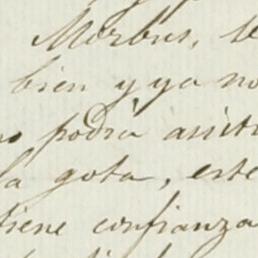 Morbus, se
bien y ya no
podrá asisti
la gota, este
tiene confianza